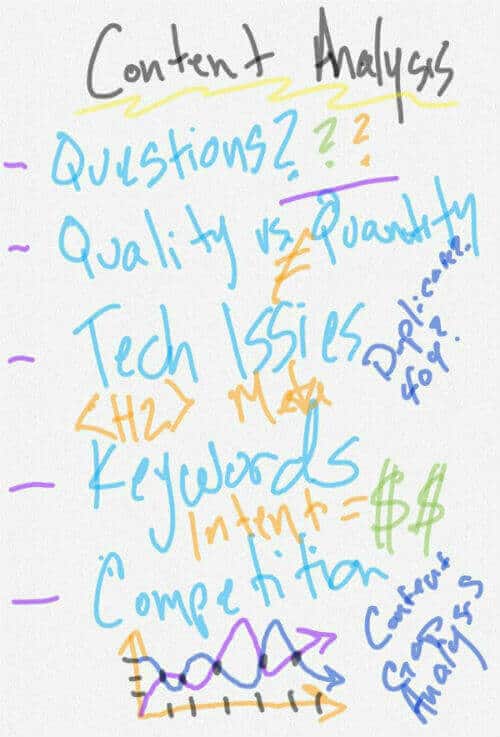 Content Analysis
- Questions? ? ?
- Quality vs. Quantity
≠
- Tech Issies
Duplicates?
404?
<H2> Meta
- Keywords
Intent = $$
- Competition
Content
Gaps
Analysis